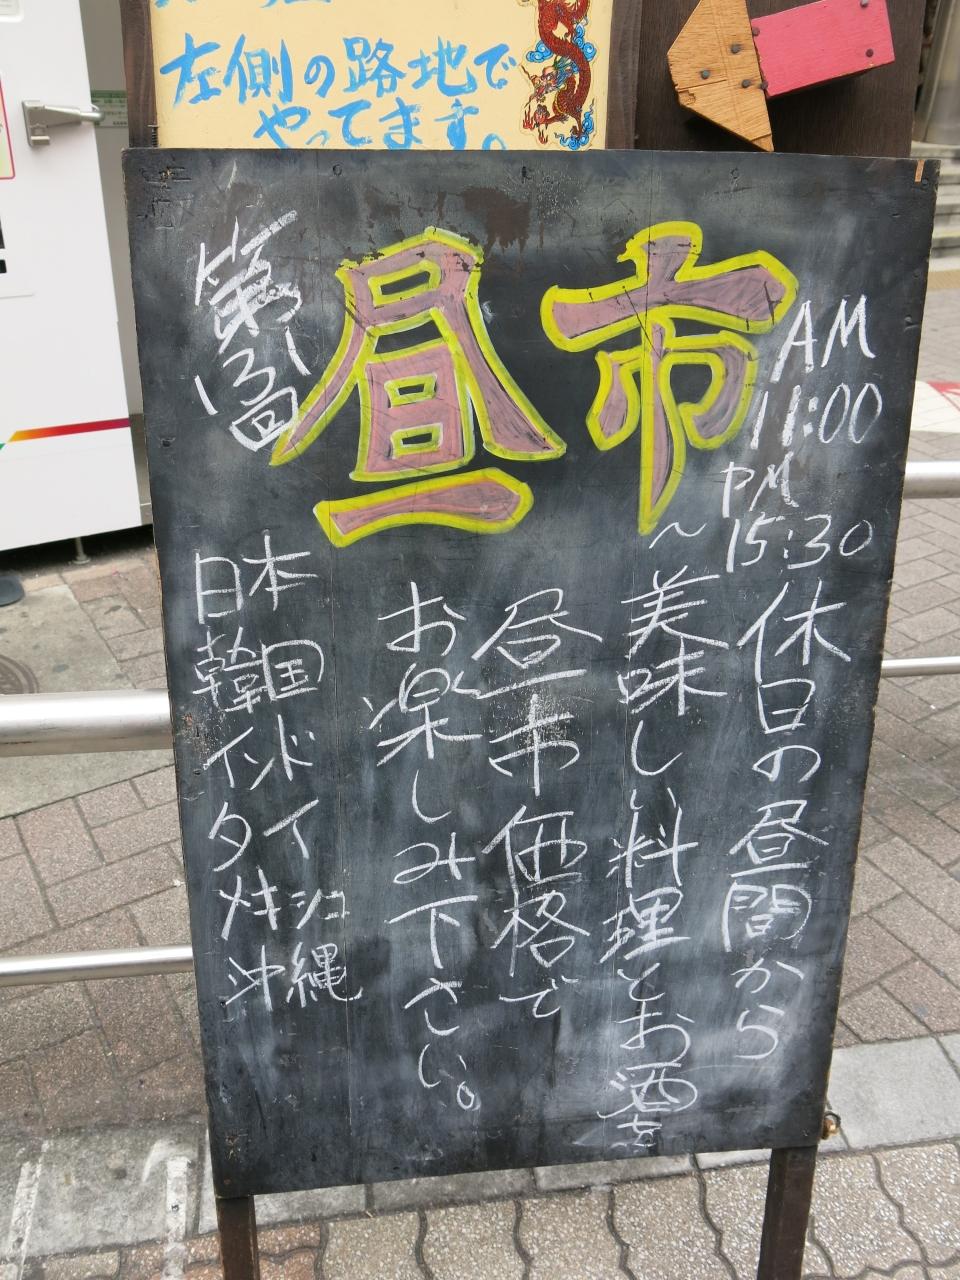 左側の路地で
やってます。
昼市
AM
11:00
PM
〜15:30
休日の昼間から
美味しい料理とお酒を
昼市価格で
お楽しみ下さい。
日本
韓国
インド
タイ
メキシコ
沖縄